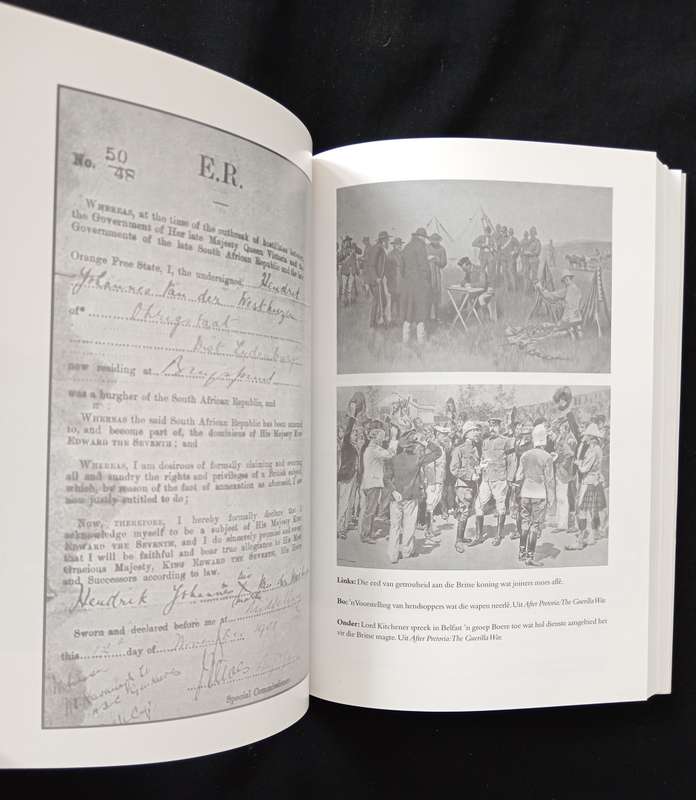 No. 50/48
E.R.
WHEREAS, at the time of the outbreak of hostilities between
the Government of Her late Majesty Queen Victoria and the
Governments of the late South African Republic and the late
Orange Free State, I, the undersigned, Hendrik
Johannes Van der Westhuizen
of
now residing at
was a burgher of the South African Republic, and
WHEREAS the said South African Republic has been annexed
to, and become part of, the dominions of His Majesty King
EDWARD THE SEVENTH; and
WHEREAS, I am desirous of formally claiming and
all and sundry the rights and privileges of a British subject,
which, by reason of the fact of annexation as aforesaid, I am
now justly entitled to do;
NOW, THEREFORE, I hereby formally declare and
acknowledge myself to be a subject of His Majesty King
EDWARD THE SEVENTH, and I do sincerely promise and swear
that I will be faithful and bear true allegiance to His Most
Gracious Majesty, KING EDWARD THE SEVENTH, His Heirs
and Successors according to law.
Hendrik Johannes
Sworn and declared before me at
this day of
Special Commissioner
Links: Die eed van getrouheid aan die Britse koning wat joiners moes aflê.
Bo: 'n Voorstelling van hendsoppers wat die wapen neerlê. Uit After Pretoria: The Guerilla War.
Onder: Lord Kitchener spreek in Belfast 'n groep Boere toe wat hul dienste aangebied het
vir die Britse magte. Uit After Pretoria: The Guerilla War.